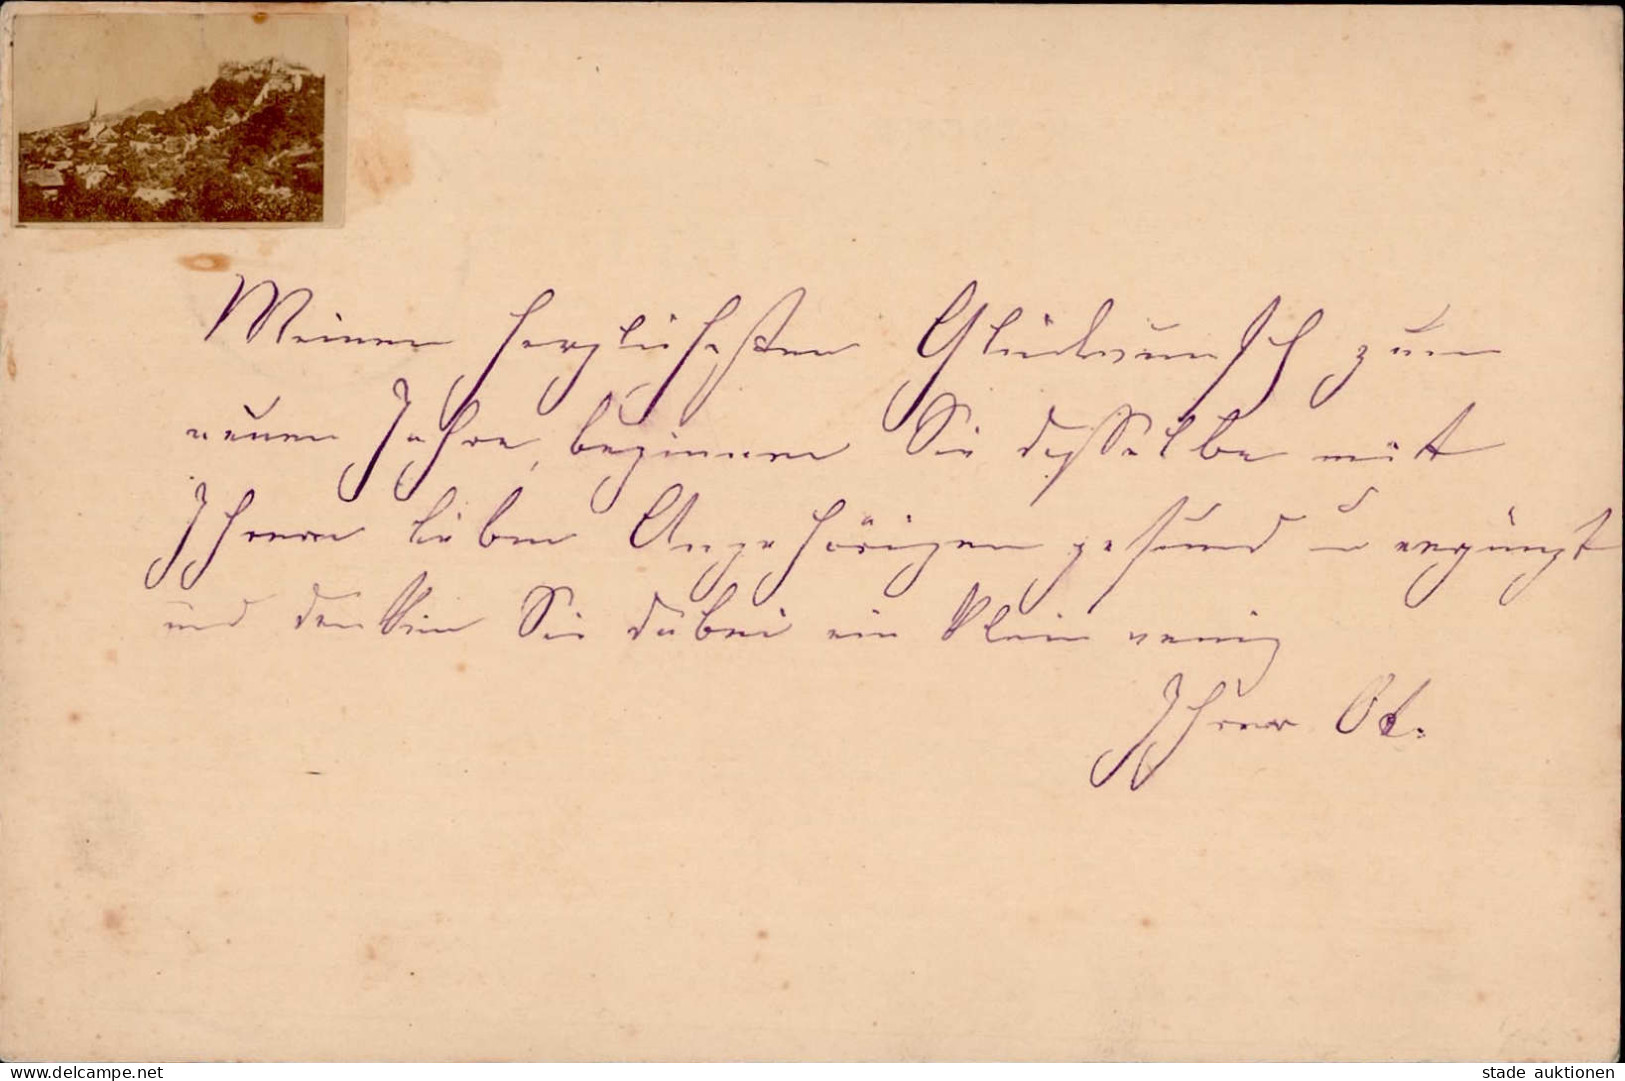 Meinen herzlichsten Glückwunsch zum
neuen Jahre, beginnen Sie dasselbe mit
Ihren lieben Angehörigen gesund u vergnügt
und denken Sie dabei ein klein wenig
Ihrer Ot.
www.delcampe.net
stade auktionen